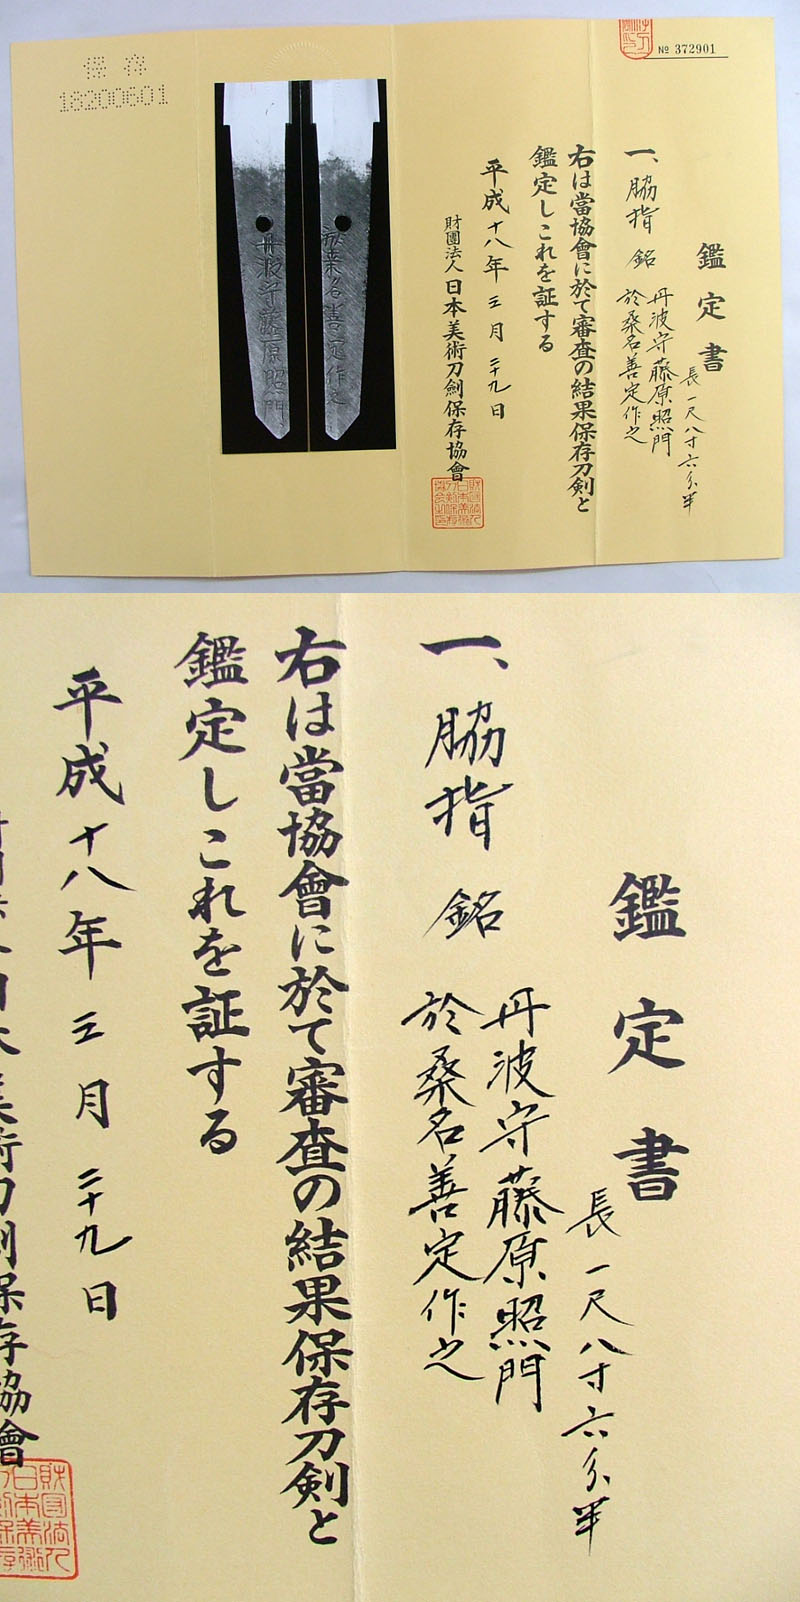 保存
18200601
丹波守藤原照門
於桑名善定作之
№ 372901
鑑定書
長一尺八寸六分半
一、脇指 銘 丹波守藤原照門
於桑名善定作之
右は當協會に於て審査の結果保存刀剣と
鑑定しこれを証する
平成十八年三月二十九日
財團法人日本美術刀劍保存協會
鑑定書
長一尺八寸六分半
一、脇指 銘 丹波守藤原照門
於桑名善定作之
右は當協會に於て審査の結果保存刀剣と
鑑定しこれを証する
平成十八年三月二十九日
美術刀劍保存協會